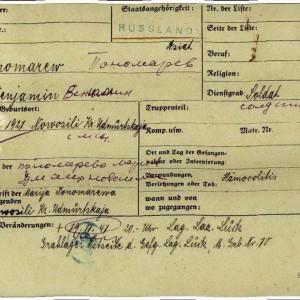 Staatsangehörigkeit:
Nr. der Liste:
RUSSLAND
Seite der Liste:
Beruf:
nomarew Пономарев
Religion:
enjamin Вениамин
Dienstgrad: Soldat
солдат
Geburtsort:
Truppenteil:
1921 Nowosili Kr. Udmurtskaja
Komp. usw.
Matr. Nr.
Ort und Tag der Gefangen-
oder Internierung
der пономарева
Verwundungen,
Verletzungen oder Tod:
Hämocolitis
rift der Marija Ponomarewa
wann und von
wo zugegangen:
osili Kr. Udmurtskaja
Veränderungen: + 41 20.- Uhr Lag. Laz. Lück
Grablage: Ostseite d. Lag. Lück Grb. Nr. 70